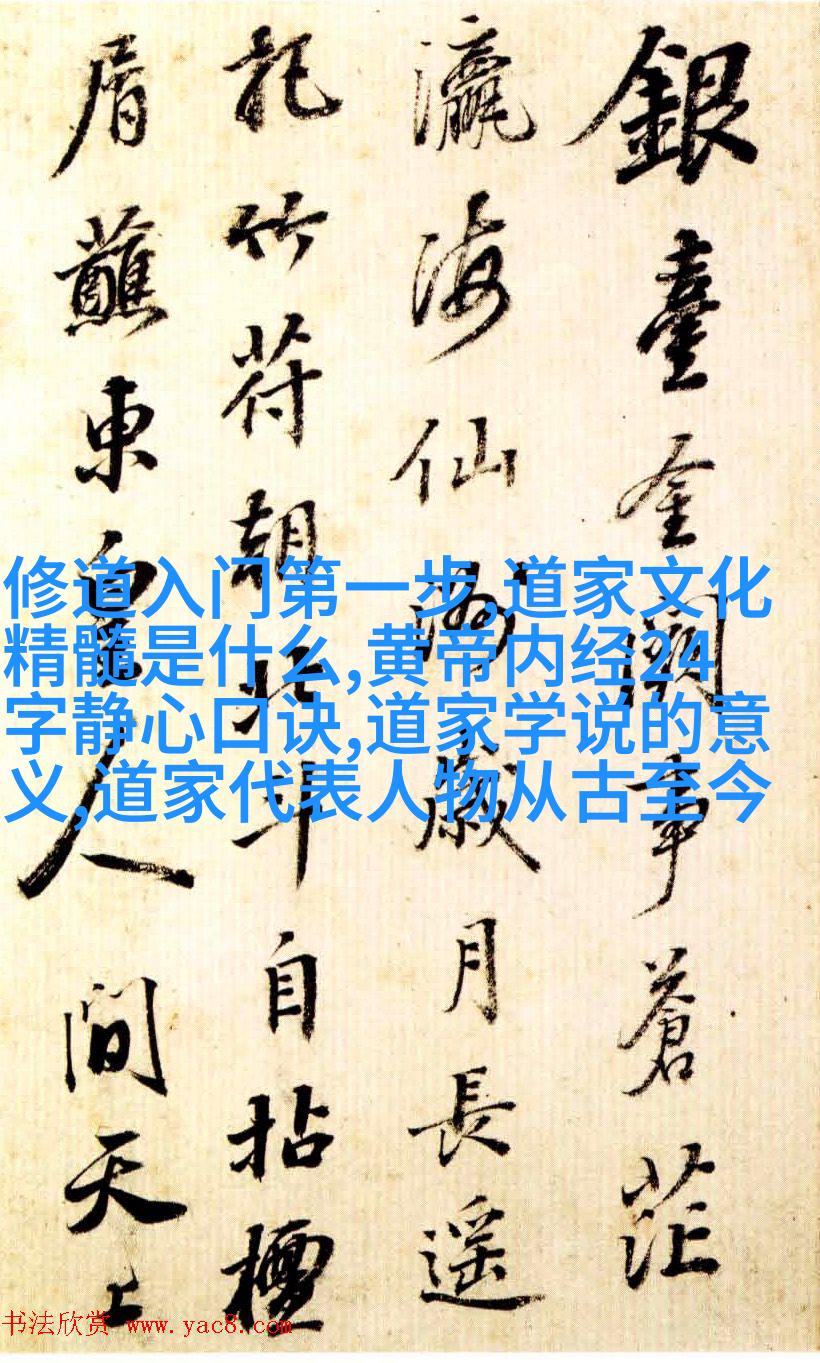 銀臺金闕事蒼茫
瀛海仙歲月長遥
記竹符朝北斗自拈檀
屑蘸東皇人間天上
修道入门第一步,道家文化
精髓是什么,黄帝内经24
字静心口诀,道家学说的意
义,道家代表人物从古至今
书法欣赏 www.yac8.com